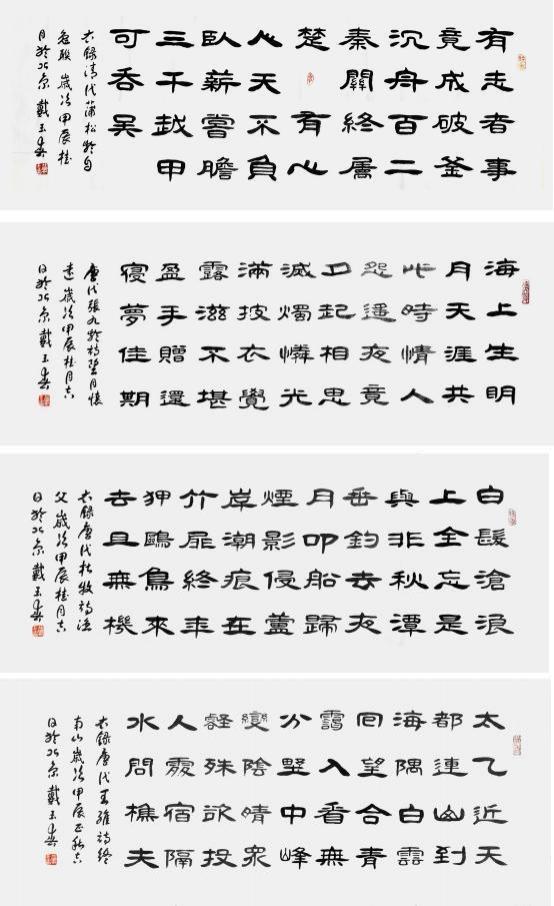 有志者事
竟成破釜
沉舟百二
秦關終屬
楚有心
心天不負
臥薪嘗膽
三千越甲
可吞吴
右錄清代蒲松齡自
勉聯歲次甲辰桂
月於北京戴玉
海上生明
月天涯共
此時情人
怨遥夜竟
夕起相思
滅燭憐光
滿披衣覺
露滋不堪
盈手贈還
寢夢佳期
唐代張九齡詩望月懷
遠歲次甲辰桂月吉
日於北京戴玉
白髮滄浪
上全忘是
與非秋潭
垂釣去夜
月叩船歸
煙影侵蘆
岸潮痕在
竹扉終年
狎鷗鳥來
去且無機
右錄唐代杜牧詩漁
父歲次甲辰桂月吉
日於北京戴玉
太乙近天
都連山到
海隅白雲
回望合青
靄入看無
分埜中峰
變陰晴眾
壑殊欲投
人處宿隔
水問樵夫
右錄唐代王維詩終
南山歲次甲辰正秋吉
日於北京戴玉